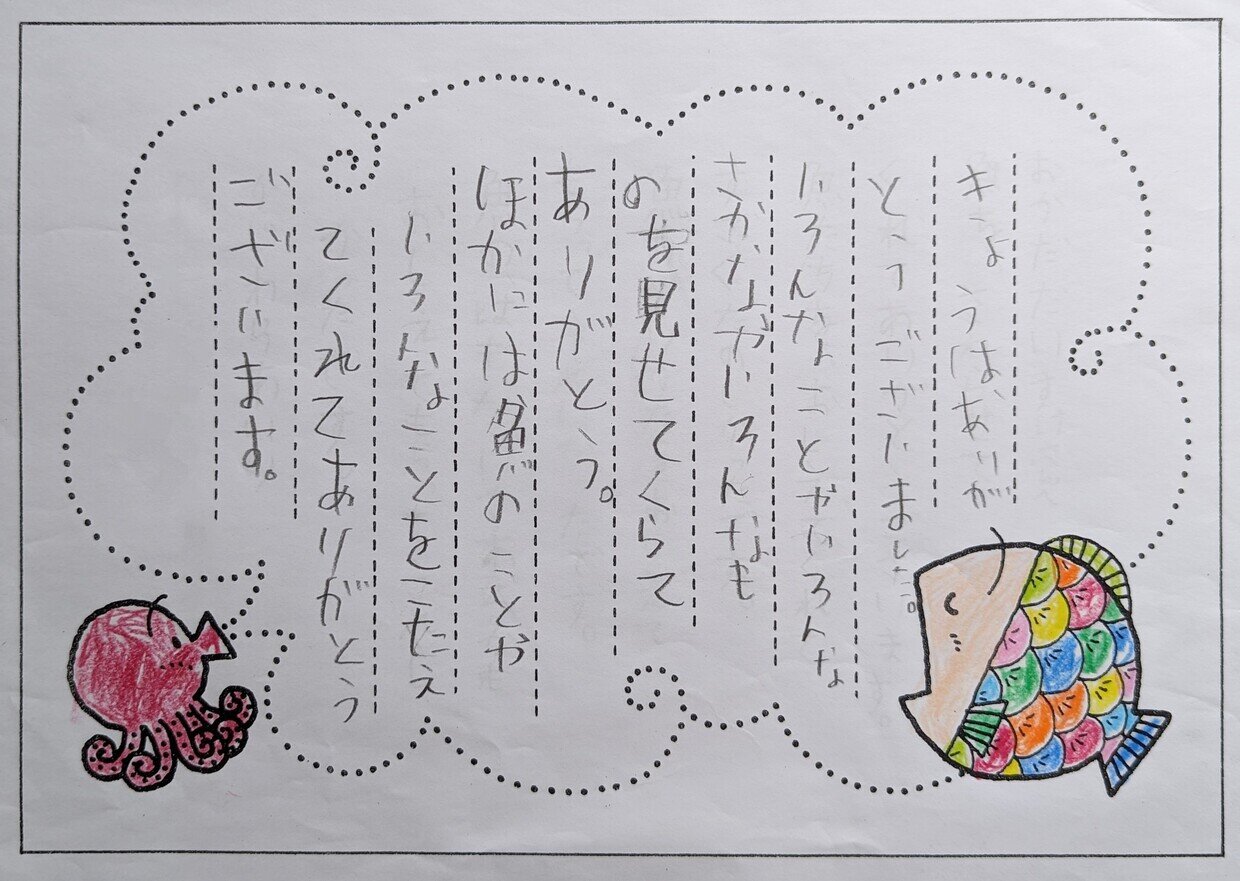 きょうは、ありが
とうございました。
いろんなことやいろんな
さかなやいろんなも
のを見せてくらて
ありがとう。
ほかには魚のことや
いろんなことをこたえ
てくれてありがとう
ございます。